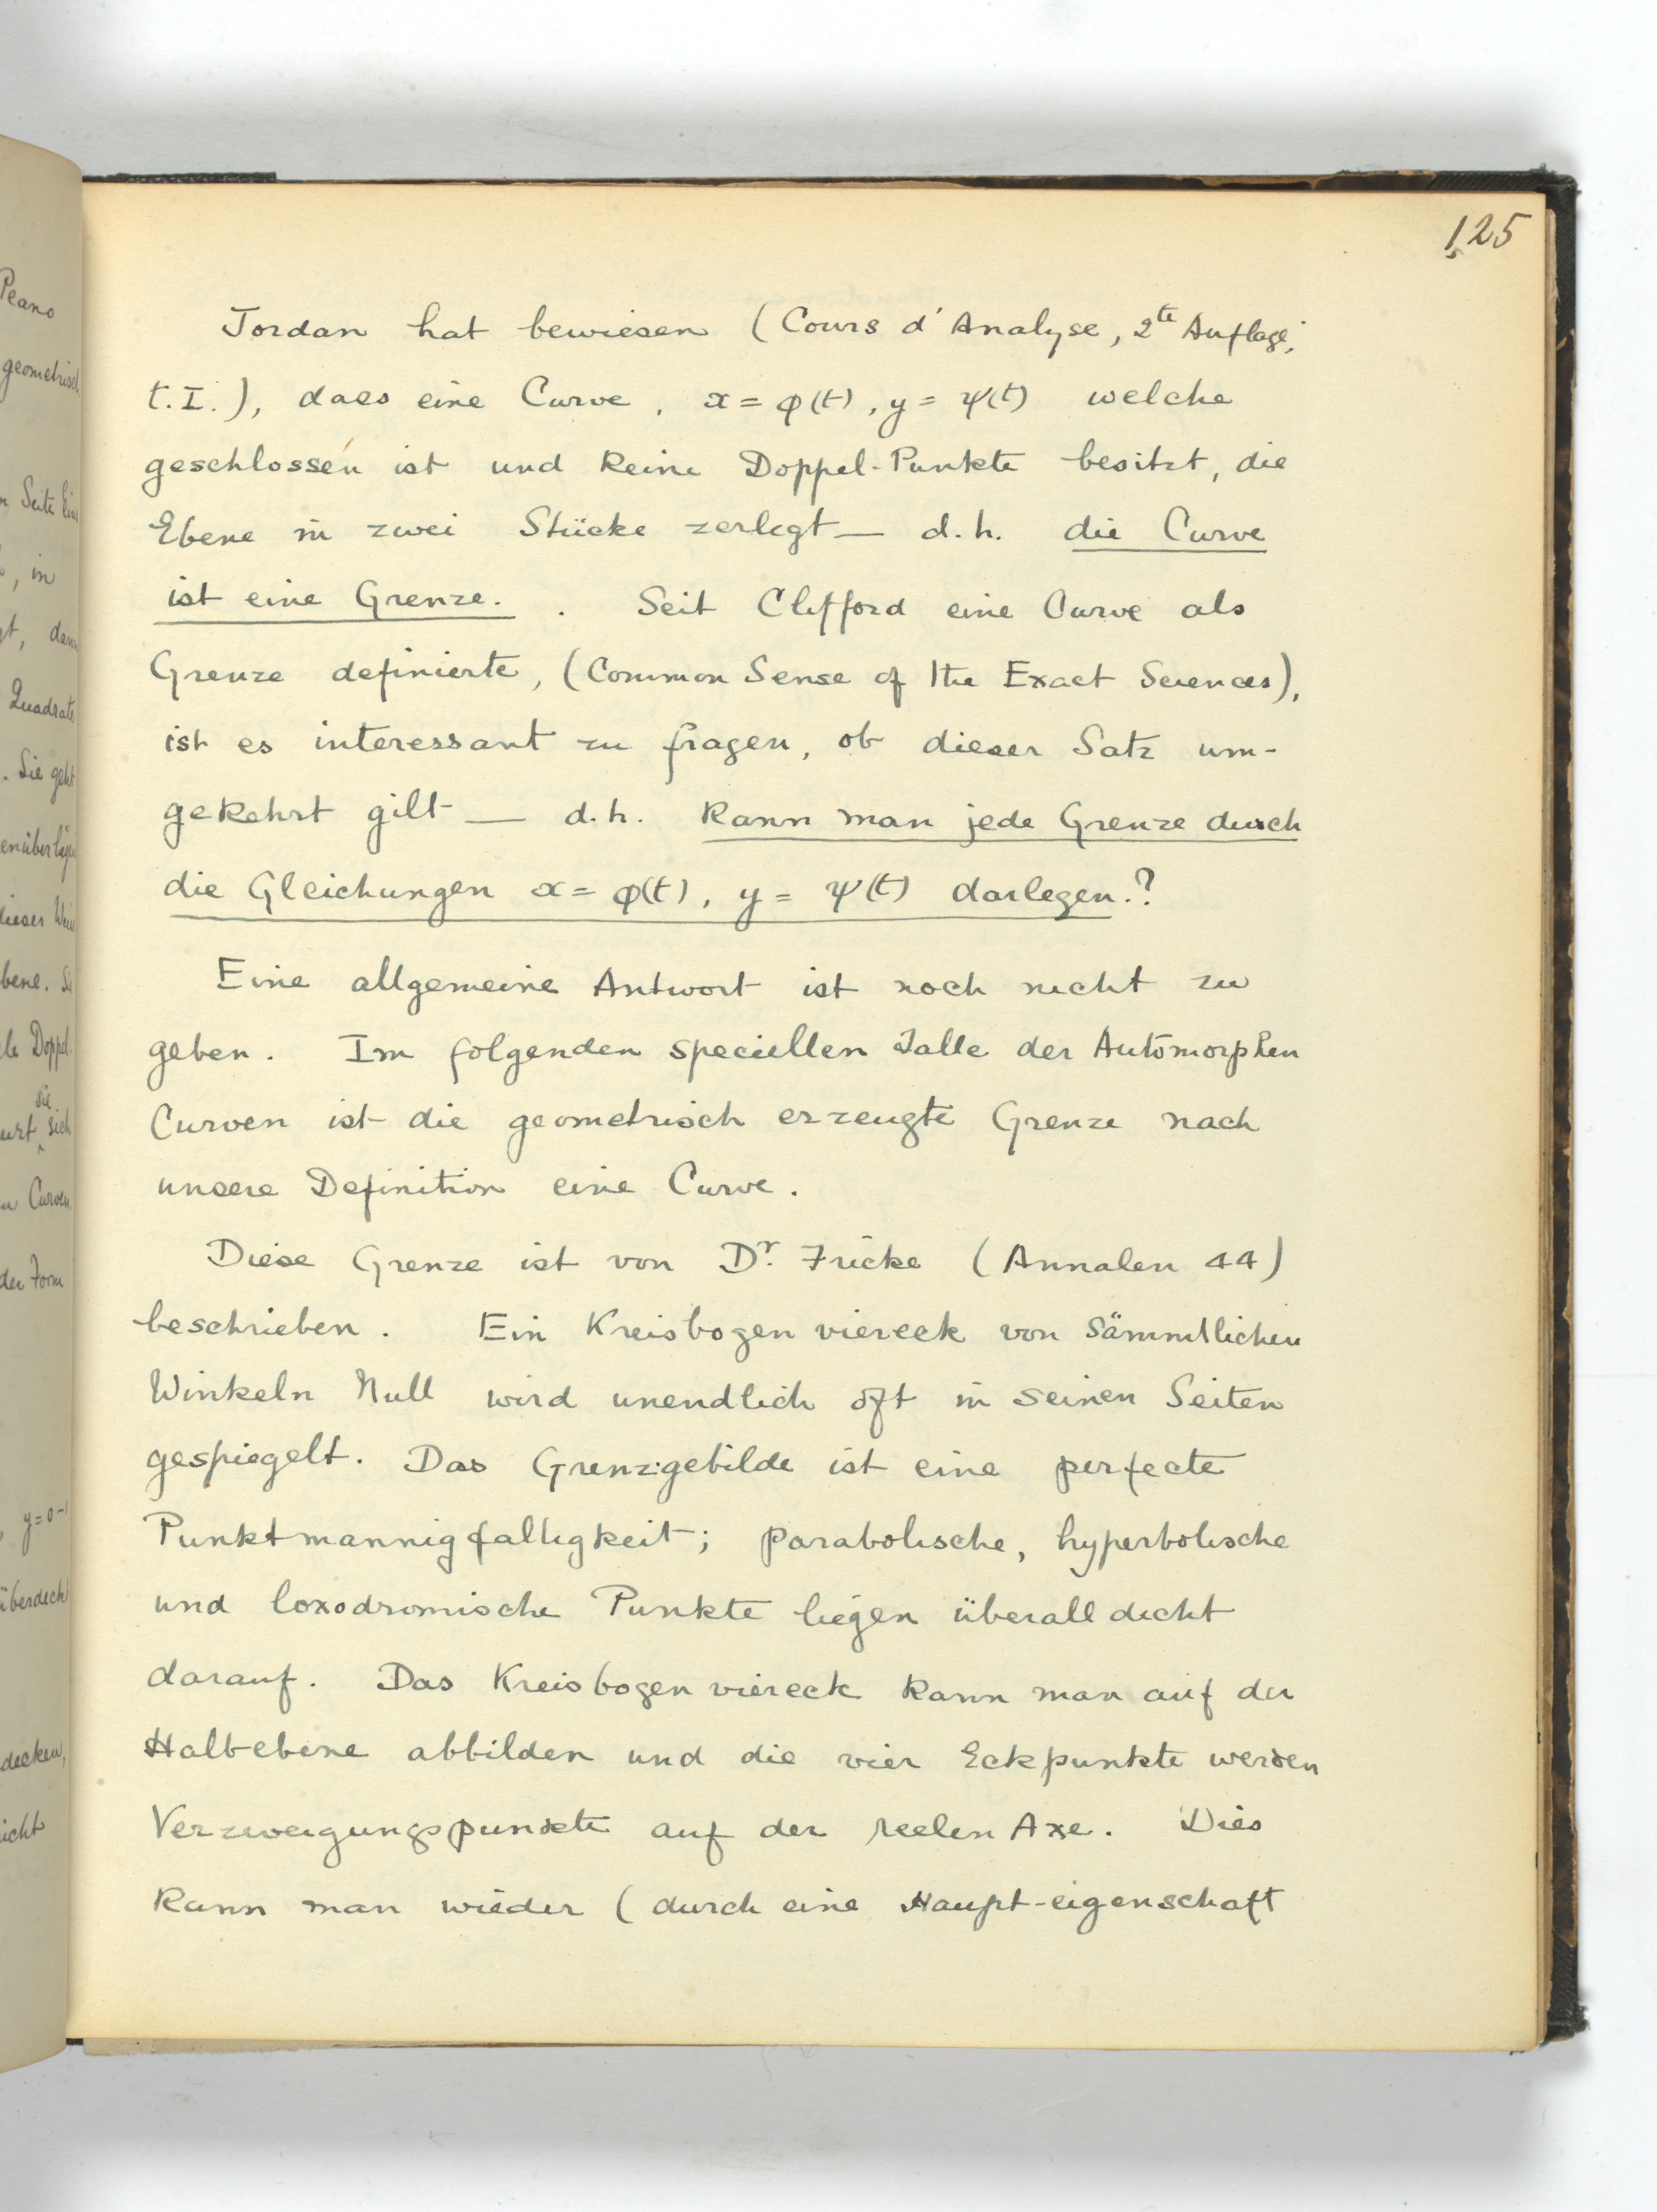 125
Jordan hat bewiesen (Cours d'Analyse, 2te Auflage,
t. I.), dass eine Curve, x = φ(t), y = ψ(t) welche
geschlossen ist und keine Doppel-Punkte besitzt, die
Ebene in zwei Stücke zerlegt — d.h. die Curve
ist eine Grenze. . Seit Clifford eine Curve als
Grenze definierte, (Common Sense of the Exact Sciences),
ist es interessant zu fragen, ob dieser Satz um-
gekehrt gilt — d.h. kann man jede Grenze durch
die Gleichungen x = φ(t), y = ψ(t) darlegen.?
Eine allgemeine Antwort ist noch nicht zu
geben. Im folgenden speciellen Falle der Automorphen
Curven ist die geometrisch erzeugte Grenze nach
unsere Definition eine Curve.
Diese Grenze ist von Dr. Fricke (Annalen 44)
beschrieben. Ein Kreisbogenviereck von sämmtlichen
Winkeln Null wird unendlich oft in seinen Seiten
gespiegelt. Das Grenzgebilde ist eine perfecte
Punktmannigfaltigkeit; parabolische, hyperbolische
und loxodromische Punkte liegen überall dicht
darauf. Das Kreisbogenviereck kann man auf der
Halbebene abbilden und die vier Eckpunkte werden
Verzweigungspunkte auf der reelen Axe. Dies
kann man wieder (durch eine Haupt-eigenschaft
Peano
geometrisch
Seite
, in
Quadrats
. Sie geht
Doppel-
sie
sich
Curven
der Form
, y=0
überdeckt
decken,